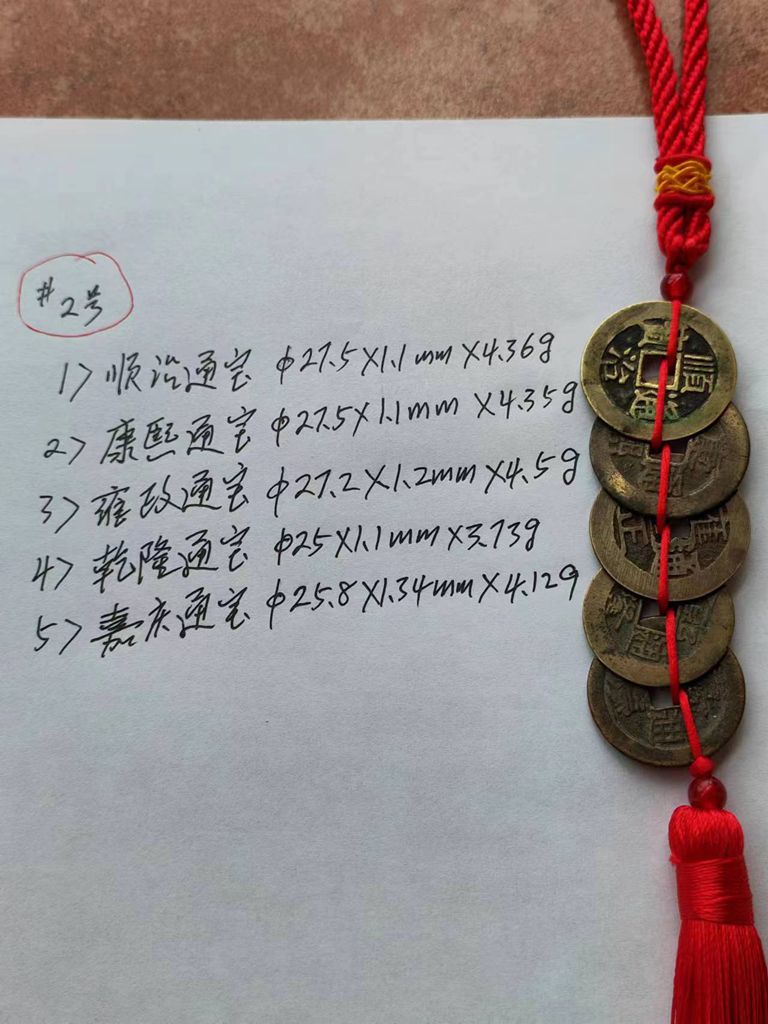 #2号
1> 顺治通宝 φ27.5×1.1mm×4.36g
2> 康熙通宝 φ27.5×1.1mm×4.35g
3> 雍政通宝 φ27.2×1.2mm×4.5g
4> 乾隆通宝 φ25×1.1mm×3.73g
5> 嘉庆通宝 φ25.8×1.34mm×4.12g
順治通